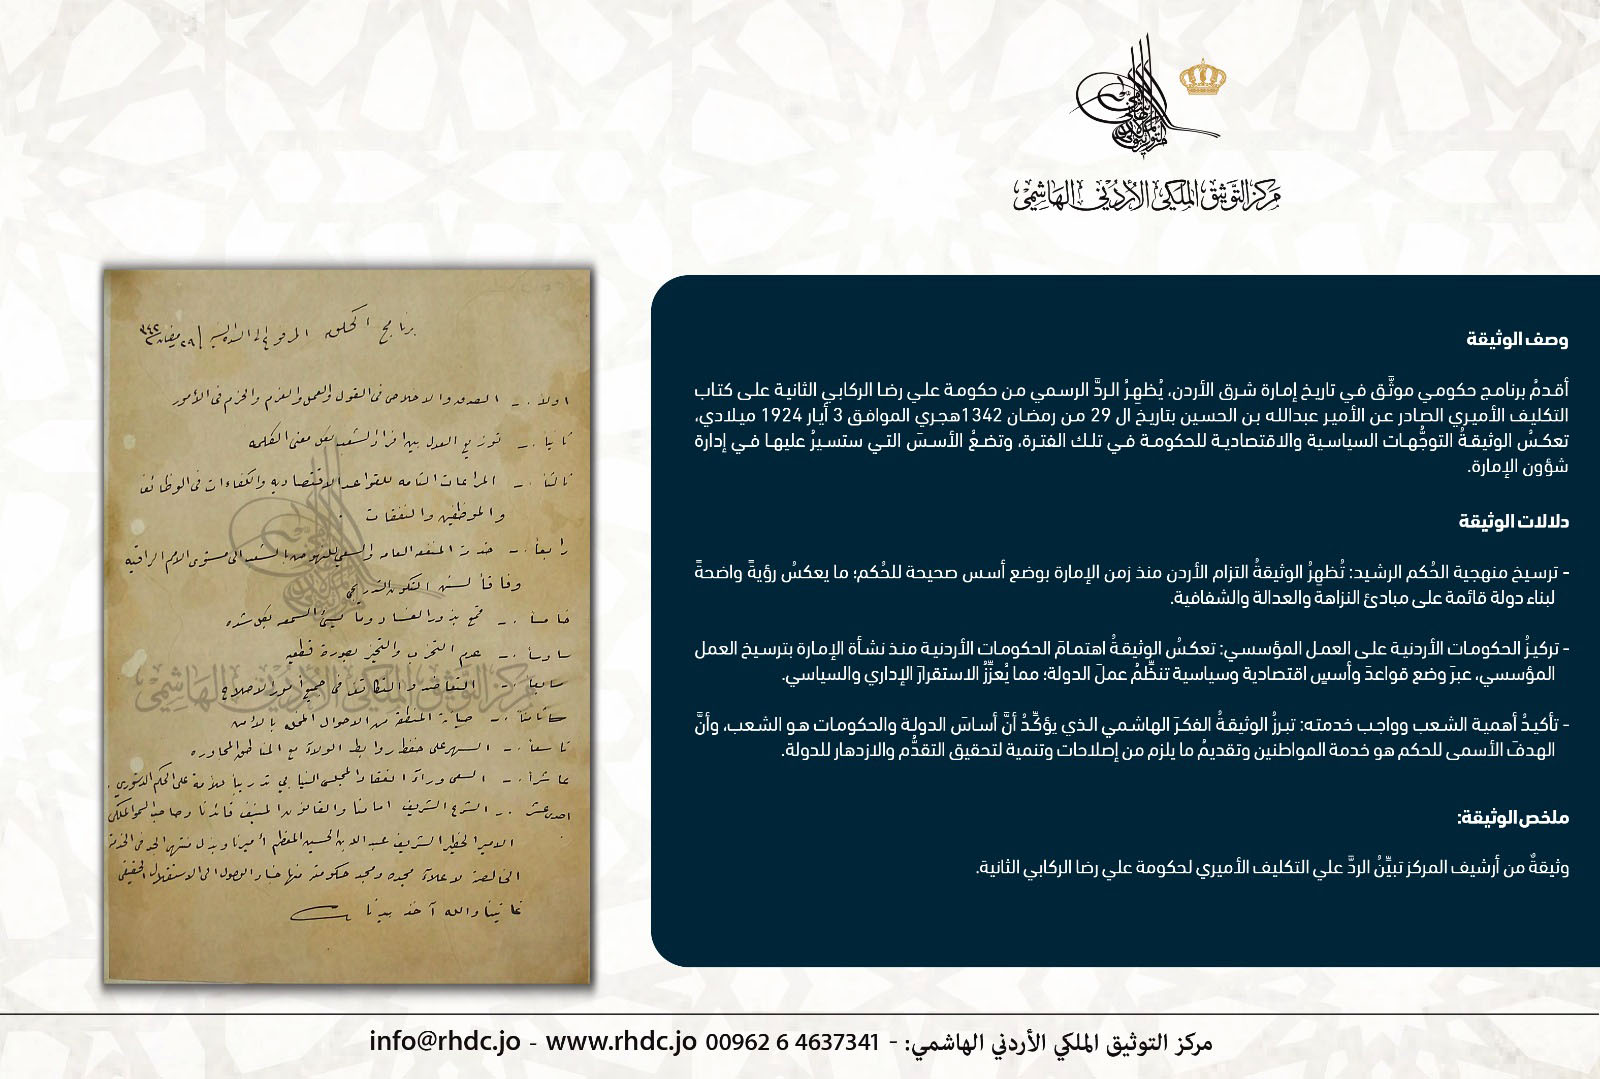 مركز التوثيق الملكي الأردني الهاشمي
وصف الوثيقة
أقدمُ برنامج حكومي موثَّق في تاريخ إمارة شرق الأردن، يُظهِرُ الردَّ الرسمي من حكومة علي رضا الركابي الثانية على كتاب
التكليف الأميري الصادر عن الأمير عبدالله بن الحسين بتاريخ ال 29 من رمضان 1342هجري الموافق 3 أيار 1924 ميلادي،
تعكسُ الوثيقةُ التوجُّهات السياسية والاقتصادية للحكومة في تلك الفترة، وتضعُ الأسسَ التي ستسيرُ عليها في إدارة
شؤون الإمارة.
دلالات الوثيقة
- ترسيخ منهجية الحُكم الرشيد: تُظهِرُ الوثيقةُ التزام الأردن منذ زمن الإمارة بوضع أسس صحيحة للحُكم؛ ما يعكسُ رؤيةً واضحةً
لبناء دولة قائمة على مبادئ النزاهة والعدالة والشفافية.
- تركيزُ الحكومات الأردنية على العمل المؤسسي: تعكسُ الوثيقةُ اهتمامَ الحكومات الأردنية منذ نشأة الإمارة بترسيخ العمل
المؤسسي، عبرَ وضع قواعدَ وأسسٍ اقتصادية وسياسية تنظِّمُ عملَ الدولة؛ مما يُعزِّزُ الاستقرارَ الإداري والسياسي.
- تأكيدُ أهمية الشعب وواجب خدمته: تبرزُ الوثيقةُ الفكرَ الهاشمي الذي يؤكِّدُ أنَّ أساسَ الدولة والحكومات هو الشعب، وأنَّ
الهدفَ الأسمى للحكم هو خدمة المواطنين وتقديمُ ما يلزم من إصلاحات وتنمية لتحقيق التقدُّم والازدهار للدولة.
ملخص الوثيقة:
وثيقةٌ من أرشيف المركز تبيِّنُ الردَّ علي التكليف الأميري لحكومة علي رضا الركابي الثانية.
برنامج المرفوع الى السدة ٢٩ رمضان ٣٤٢
اولاً .- الصدق والاخلاص فى القول والعمل والعزم والحزم فى الأمور
ثانياً .- توزيع العدل بين افراد الشعب بكل معنى الكلمه
ثالثاً .- المراعات التامه للقواعد الاقتصاديه والكفاءات فى الوظائف
والموظفين والنفقات .
رابعاً .- خدمة المنفعه العامه والسعي للنهوض بالشعب الى مستوى الامم الراقيه
وفاقاً لسنن التكون التدريجي
خامساً .- قمع بذور الفساد وما يسيئ السمعه بكل شده
سادساً .- عدم التحزب والتحيز بصورة قطعيه
سابعاً .- التعاضد والتكاتف فى جميع أمور الاصلاح
ثامناً .- صيانة المنطقة من الاحوال المخله بالأمن
تاسعاً .- السهر على حفظ روابط الولاء مع المناطق المجاوره
عاشراً .- السعى وراء انعقاد المجلس النيابي تدريباً للأمة على الحكم الدستوري .
احدى عشر .- الشرع الشريف امامنا والقانون المنيف قائدنا وصاحب السمو الملكى
الامير الخطير الشريف عبد الله بن الحسين المعظم أميرنا وبذل منتهى الجد فى الخدمة
الخالصة لاعلاء مجده ومجد حكومته منها جنا والوصول الى الاستقلال الحقيقى
غايتنا والله آخذ بيدنا
مركز التوثيق الملكي الأردني الهاشمي: - 00962 6 4637341 www.rhdc.jo - info@rhdc.jo